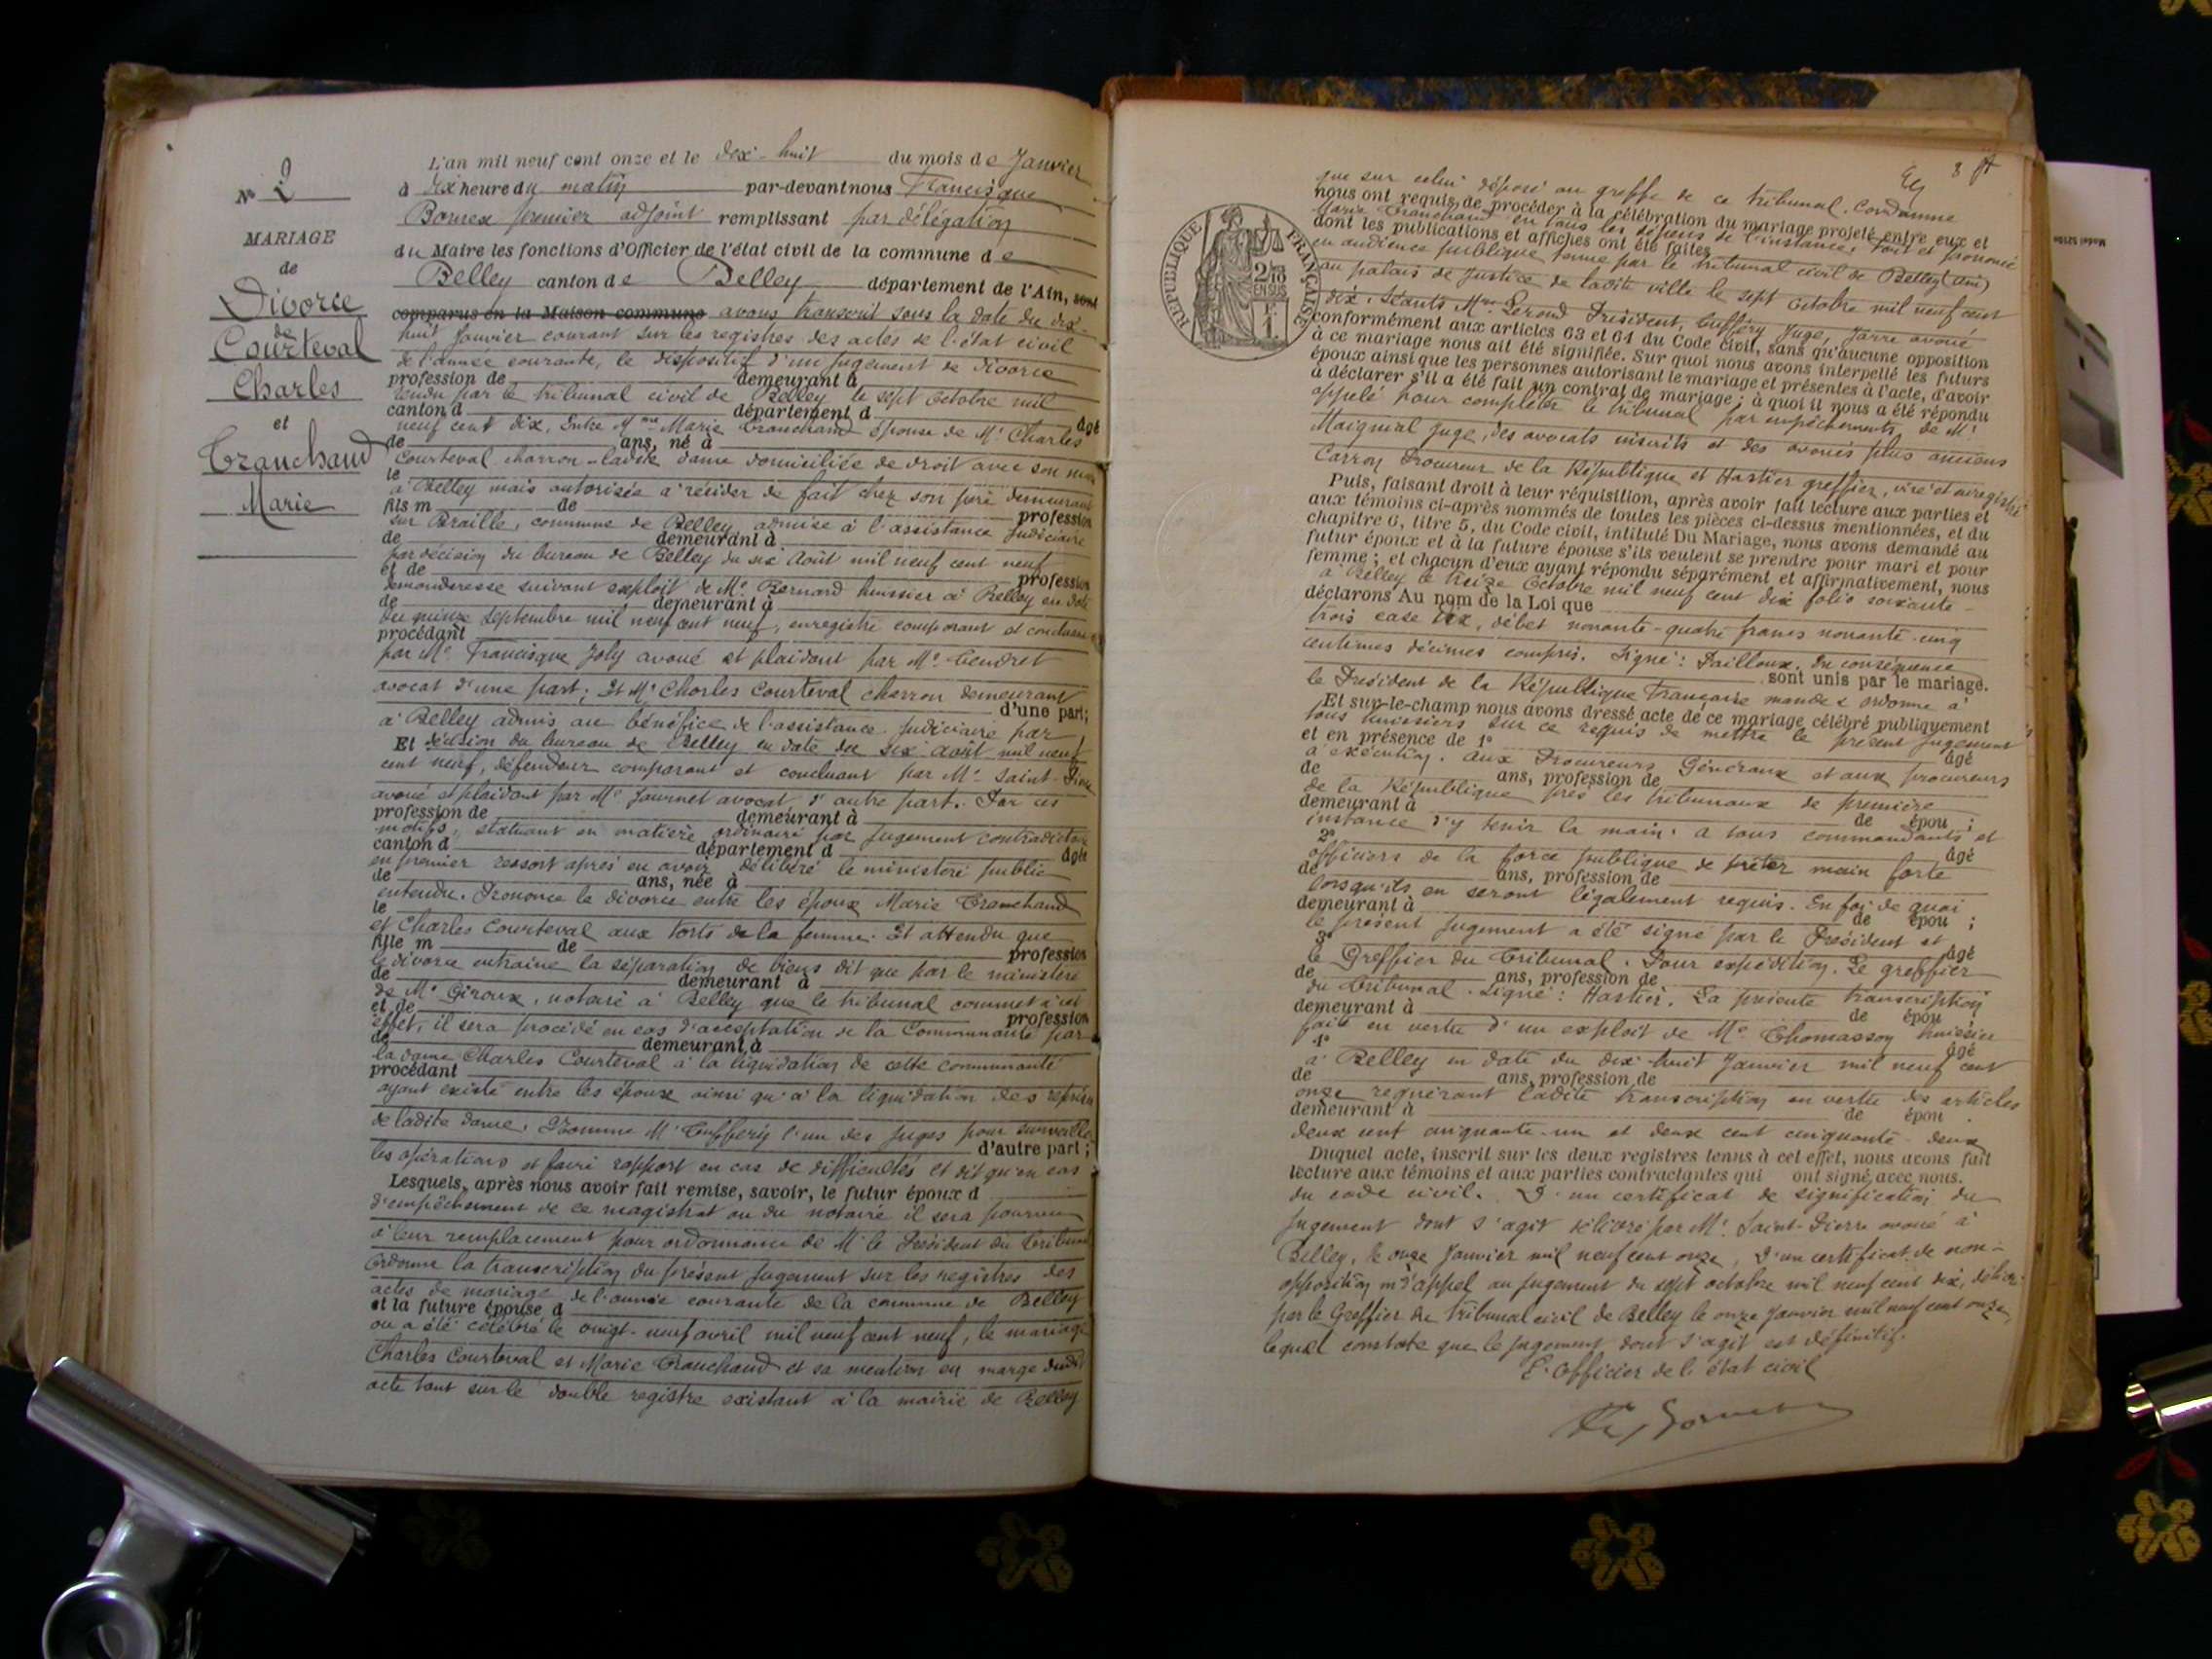 N° 2
MARIAGE
de
Divorce
de
Courteval
Charles
et
Tranchand
Marie
L'an mil neuf cent onze et le dix-huit du mois de Janvier
à dix heure du matin par-devant nous Francisque
Bornex premier adjoint remplissant par délégation
du Maire les fonctions d'Officier de l'état civil de la commune de
Belley canton de Belley département de l'Ain, sont
comparus en la Maison commune avons transcrit sous la date du dix-
huit Janvier courant sur les registres des actes de l'état civil
de l'année courante, le dispositif d'un jugement de divorce
profession de demeurant à
rendu par le tribunal civil de Belley le sept Octobre mil
canton d département d âgé
neuf cent dix, Entre Mme Marie Tranchand épouse de Mr Charles
de ans, né à
Courteval charron ladite dame domiciliée de droit avec son mari
le
à Belley mais autorisée à résider de fait chez son père demeurant
fils m de profession
sur Braille, commune de Belley, admise à l'assistance judiciaire
de demeurant à
par décision du bureau de Belley du six Août mil neuf cent neuf
et de profession
demanderesse suivant exploit de Me Bernard huissier à Belley en date
de demeurant à
du quinze Septembre mil neuf cent neuf, enregistré comparant et concluant
procédant
par Me Francisque Joly avoué et plaidant par Me Tendret
avocat d'une part; Et Mr Charles Courteval charron demeurant
d'une part;
à Belley admis au bénéfice de l'assistance judiciaire par
Et décision du bureau de Belley en date du six août mil neuf
cent neuf, défendeur comparant et concluant par Me Saint-Pierre
avoué et plaidant par Me Journet avocat d'autre part. Par ces
profession de demeurant à
motifs, statuant en matière ordinaire par jugement contradictoire
canton d département d âgée
en premier ressort après en avoir délibéré le ministère public
de ans, née à
entendu. Prononce le divorce entre les époux Marie Tranchand
le
et Charles Courteval aux torts de la femme. Et attendu que
fille m de profession
le divorce entraine la séparation de biens dit que par le ministère
de demeurant à
de Me Giroux, notaire à Belley que le tribunal commet à cet
et de profession
effet, il sera procédé en cas d'acceptation de la Communauté par
de demeurant à
la dame Charles Courteval à la liquidation de cette communauté
procédant
ayant existé entre les époux ainsi qu'à la liquidation des reprises
de ladite dame. Nomme Mr Cufféry l'un des juges pour surveiller
d'autre part;
les opérations et faire rapport en cas de difficultés et dit qu'en cas
Lesquels, après nous avoir fait remise, savoir, le futur époux d
d'empêchement de ce magistrat ou du notaire il sera pourvu
à leur remplacement pour ordonnance de Mr le Président du Tribunal
Ordonne la transcription du présent jugement sur les registres des
actes de mariage de l'année courante de la commune de Belley
et la future épouse d
ou a été célébré le vingt-neuf avril mil neuf cent neuf, le mariage
Charles Courteval et Marie Tranchand et sa mention en marge dudit
acte tant sur le double registre existant à la mairie de Belley
8
que sur celui déposé au greffe de ce tribunal. Condamne
nous ont requis de procéder à la célébration du mariage projeté entre eux et
Marie Tranchand en tous les dépens de l'instance. Fait et prononcé
dont les publications et affiches ont été faites
en audience publique tenue par le tribunal civil de Belley (Ain)
au palais de Justice de ladite ville le sept Octobre mil neuf cent
dix. Séants Mrs Lerond Président, Cufféry Juge, Jarre avoué
REPUBLIQUE FRANÇAISE
conformément aux articles 63 et 64 du Code civil, sans qu'aucune opposition
à ce mariage nous ait été signifiée. Sur quoi nous avons interpellé les futurs
époux ainsi que les personnes autorisant le mariage et présentes à l'acte, d'avoir
à déclarer s'il a été fait un contrat de mariage; à quoi il nous a été répondu
appelé pour compléter le tribunal par empêchements de Mr
Maignial Juge, des avocats inscrits et des avoués plus anciens
Carron Procureur de la République et Hastier greffier, visé et enregistré
Puis, faisant droit à leur réquisition, après avoir fait lecture aux parties et
aux témoins ci-après nommés de toutes les pièces ci-dessus mentionnées, et du
chapitre 6, titre 5, du Code civil, intitulé Du Mariage, nous avons demandé au
futur époux et à la future épouse s'ils veulent se prendre pour mari et pour
femme; et chacun d'eux ayant répondu séparément et affirmativement, nous
à Belley le treize Octobre mil neuf cent dix folio soixante-
déclarons Au nom de la Loi que
trois case dix, débet nonante-quatre francs nonante-cinq
centimes décimes compris. Signé: Pailloux. En conséquence
sont unis par le mariage.
le Président de la République Française mande & ordonne à
Et sur-le-champ nous avons dressé acte de ce mariage célébré publiquement
tous huissiers sur ce requis de mettre le présent jugement
et en présence de 1° âgé
à exécution. Aux Procureurs Généraux et aux procureurs
de ans, profession de
de la République près les tribunaux de première
demeurant à de épou ;
instance d'y tenir la main. A tous commandants et
2° âgé
officiers de la force publique de prêter main forte
de ans, profession de
lorsqu'ils en seront légalement requis. En foi de quoi
demeurant à de épou ;
le présent jugement a été signé par le Président et
3° âgé
le Greffier du Tribunal. Pour expédition. Le greffier
de ans, profession de
du Tribunal. Signé: Hastier. La présente transcription
demeurant à de épou ;
faite en vertu d'un exploit de Me Thomasson huissier
4° âgé
à Belley en date du dix-huit Janvier mil neuf cent
de ans, profession de
onze requérant ladite transcription en vertu des articles
demeurant à de épou
deux cent cinquante-un et deux cent cinquante-deux
Duquel acte, inscrit sur les deux registres tenus à cet effet, nous avons fait
lecture aux témoins et aux parties contractantes qui ont signé avec nous.
du code civil. D'un certificat de signification du
jugement dont s'agit délivré par Me Saint-Pierre avoué à
Belley, le onze Janvier mil neuf cent onze, D'un certificat de non-
opposition ni d'appel au jugement du sept octobre mil neuf cent dix, délivré
par le Greffier du Tribunal civil de Belley le onze Janvier mil neuf cent onze,
lequel constate que le jugement dont s'agit est définitif.
L'Officier de l'état civil